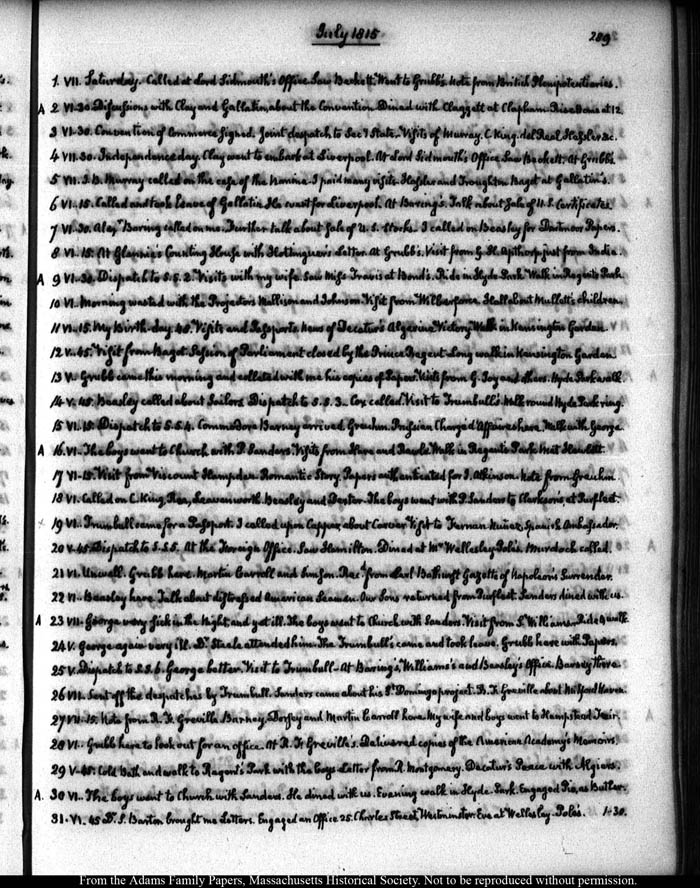 July 1815
289
1. VII. Saturday. Called at Lord Sidmouth's Office. Saw Beckett. Went to Grubb's. Note from British Plenipotentiaries.
A 2 VI-30. Discussions with Clay and Gallatin about the Convention. Dined with Claggett at Clapham. Rise Dons at 12.
3 VI-30. Convention of Commerce signed. Joint despatch to Sec'y State. Visits of Murray. C. King. del Real. Hassler &c.
4 VII.30. Independence day. Clay went to embark at Liverpool. At Lord Sidmouth's Office. Saw Beckett. At Grubb's.
5 VII. J. B. Murray called on the case of the Nanina. I paid many visits. Hassler and Troughton. Bagot at Gallatin's.
6 VI-15. Called and took leave of Gallatin. He went for Liverpool. At Baring's. Talk about Sale of U.S. Certificates.
7 VI.30. Alex.r Baring called on me. Further talk about Sale of U.S. Stocks. I called on Beasley for Dartmoor Papers.
8 VI.15. At Glennie's Counting House with Hottinguer's Letter. At Grubb's. Visit from G. H. Apthorp just from India.
A 9 VI-30. Dispatch to S.S. 2. Visits with my wife. Saw Miss Travis at Bond's. Ride in Hyde Park. Walk in Regent's Park.
10 VI. Morning wasted with the Projectors Mallison and Johnson. Visit from Wilberforce. Hall about Mullett's children.
11 VI-15. My Birth-day. 48. Visits and Passports. News of Decatur's Algerine Victory. Walk in Kensington Garden.
12 V-45. Visit from Bagot. Session of Parliament closed by the Prince Regent. Long walk in Kensington Garden.
13 V. Grubb came this morning and collated with me his copies of Papers. Visits from G. Joy and others. Hyde Park walk.
14 V.45. Beasley called about Sailors. Dispatch to S.S. 3. Cox called. Visit to Trumbull's. Walk round Hyde Park ring.
15 VI-15. Dispatch to S.S. 4. Commodore Barney arrived. Greuhm. Prussian Chargé d'Affaires here. Walk with George.
A 16 VI-. The boys went to Church with P. Sanders. Visits from Hare and Rawle. Walk in Regent's Park. Met Hewlett.
17 VI-15. Visit from Viscount Hampden. Romantic Story. Papers authenticated for J. Atkinson. Note from Greuhm.
18 VI. Called on C. King. Rea, Leavenworth. Beasley and Dexter. The boys went with P. Sanders to Clarkson's, at Purfleet.
19 VI. Trumbull came for a Passport. I called upon Capper, about Carver. Visit to Fernan Nuñez, Spanish Ambassador.
20 V-45. Dispatch to S.S. 5. At the Foreign Office. Saw Hamilton. Dined at Mr Wellesley Pole's. Murdoch called.
21 VI. Unwell. Grubb here. Martin Carroll and Emson. Rec.d from Earl Bathurst Gazette of Napoleon's Surrender.
22 VI-. Beasley here. Talk about distressed American Seamen. Our Sons returned from Purfleet. Sanders dined with us.
A 23 VII-. George very sick in the Night, and yet ill. The boys went to Church with Sanders. Visit from S. Williams. Ride & walk.
24 V. George again very ill. Dr. Steale attended him. The Trumbull's came and took leave. Grubb here with Papers.
25 V. Dispatch to S.S. 6. George better. Visit to Trumbull - At Baring's, Williams's and Beasley's Office. Barney there.
26 VII. Sent off the despatches by Trumbull. Sanders came about his St. Domingo project. R. F. Greville about Milford Haven.
27 VII-15. Note from R. F. Greville. Barney, Dorsey and Martin Carroll here. My wife and boys went to Hampstead Fair.
28 VI. Grubb here to look out for an office. At R. F. Greville's. Delivered copies of the American Academy's Memoirs.
29 V-45. Cold Bath and walk to Regent's Park with the boys. Letter from R. Montgomery. Decatur's Peace with Algiers.
A. 30 VI-. The boys went to Church with Sanders. He dined with us. Evening walk in Hyde Park. Engaged Pio, as Butler.
31-VI.45 Dr. S. Barton brought me Letters. Engaged an Office 25. Charles Street, Westminster. Eve at Wellesley-Pole's. 1-30.
From the Adams Family Papers, Massachusetts Historical Society. Not to be reproduced without permission.